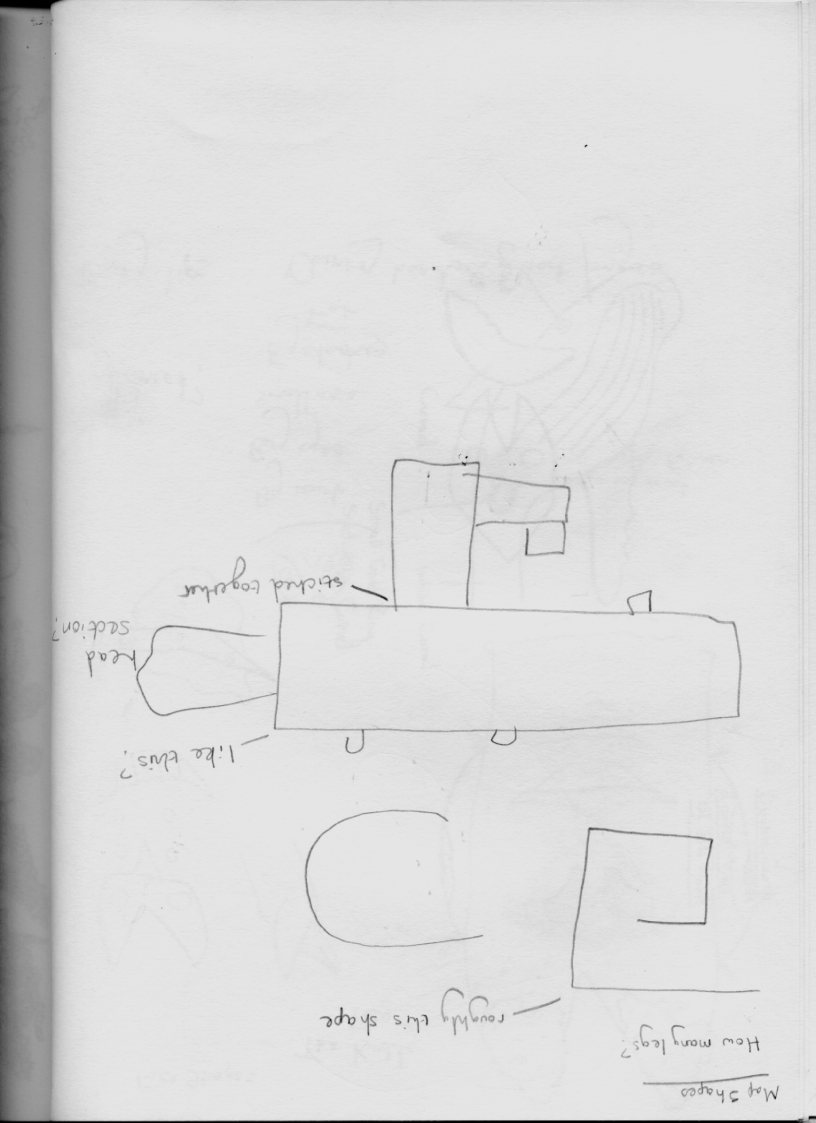 Map Shapes
How many legs?
roughly this shape
like this?
head
section?
stiched together